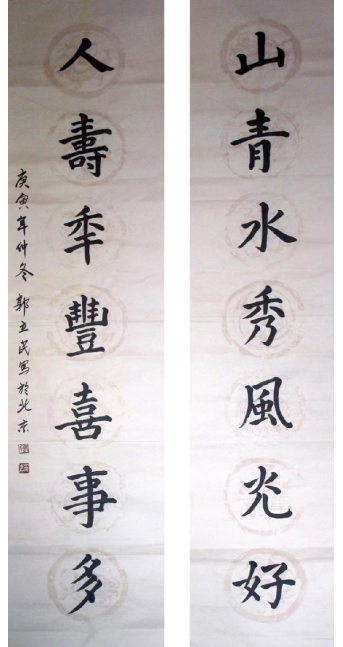 山青水秀風光好
人壽年豐喜事多
庚寅年仲冬郭立民寫於北京